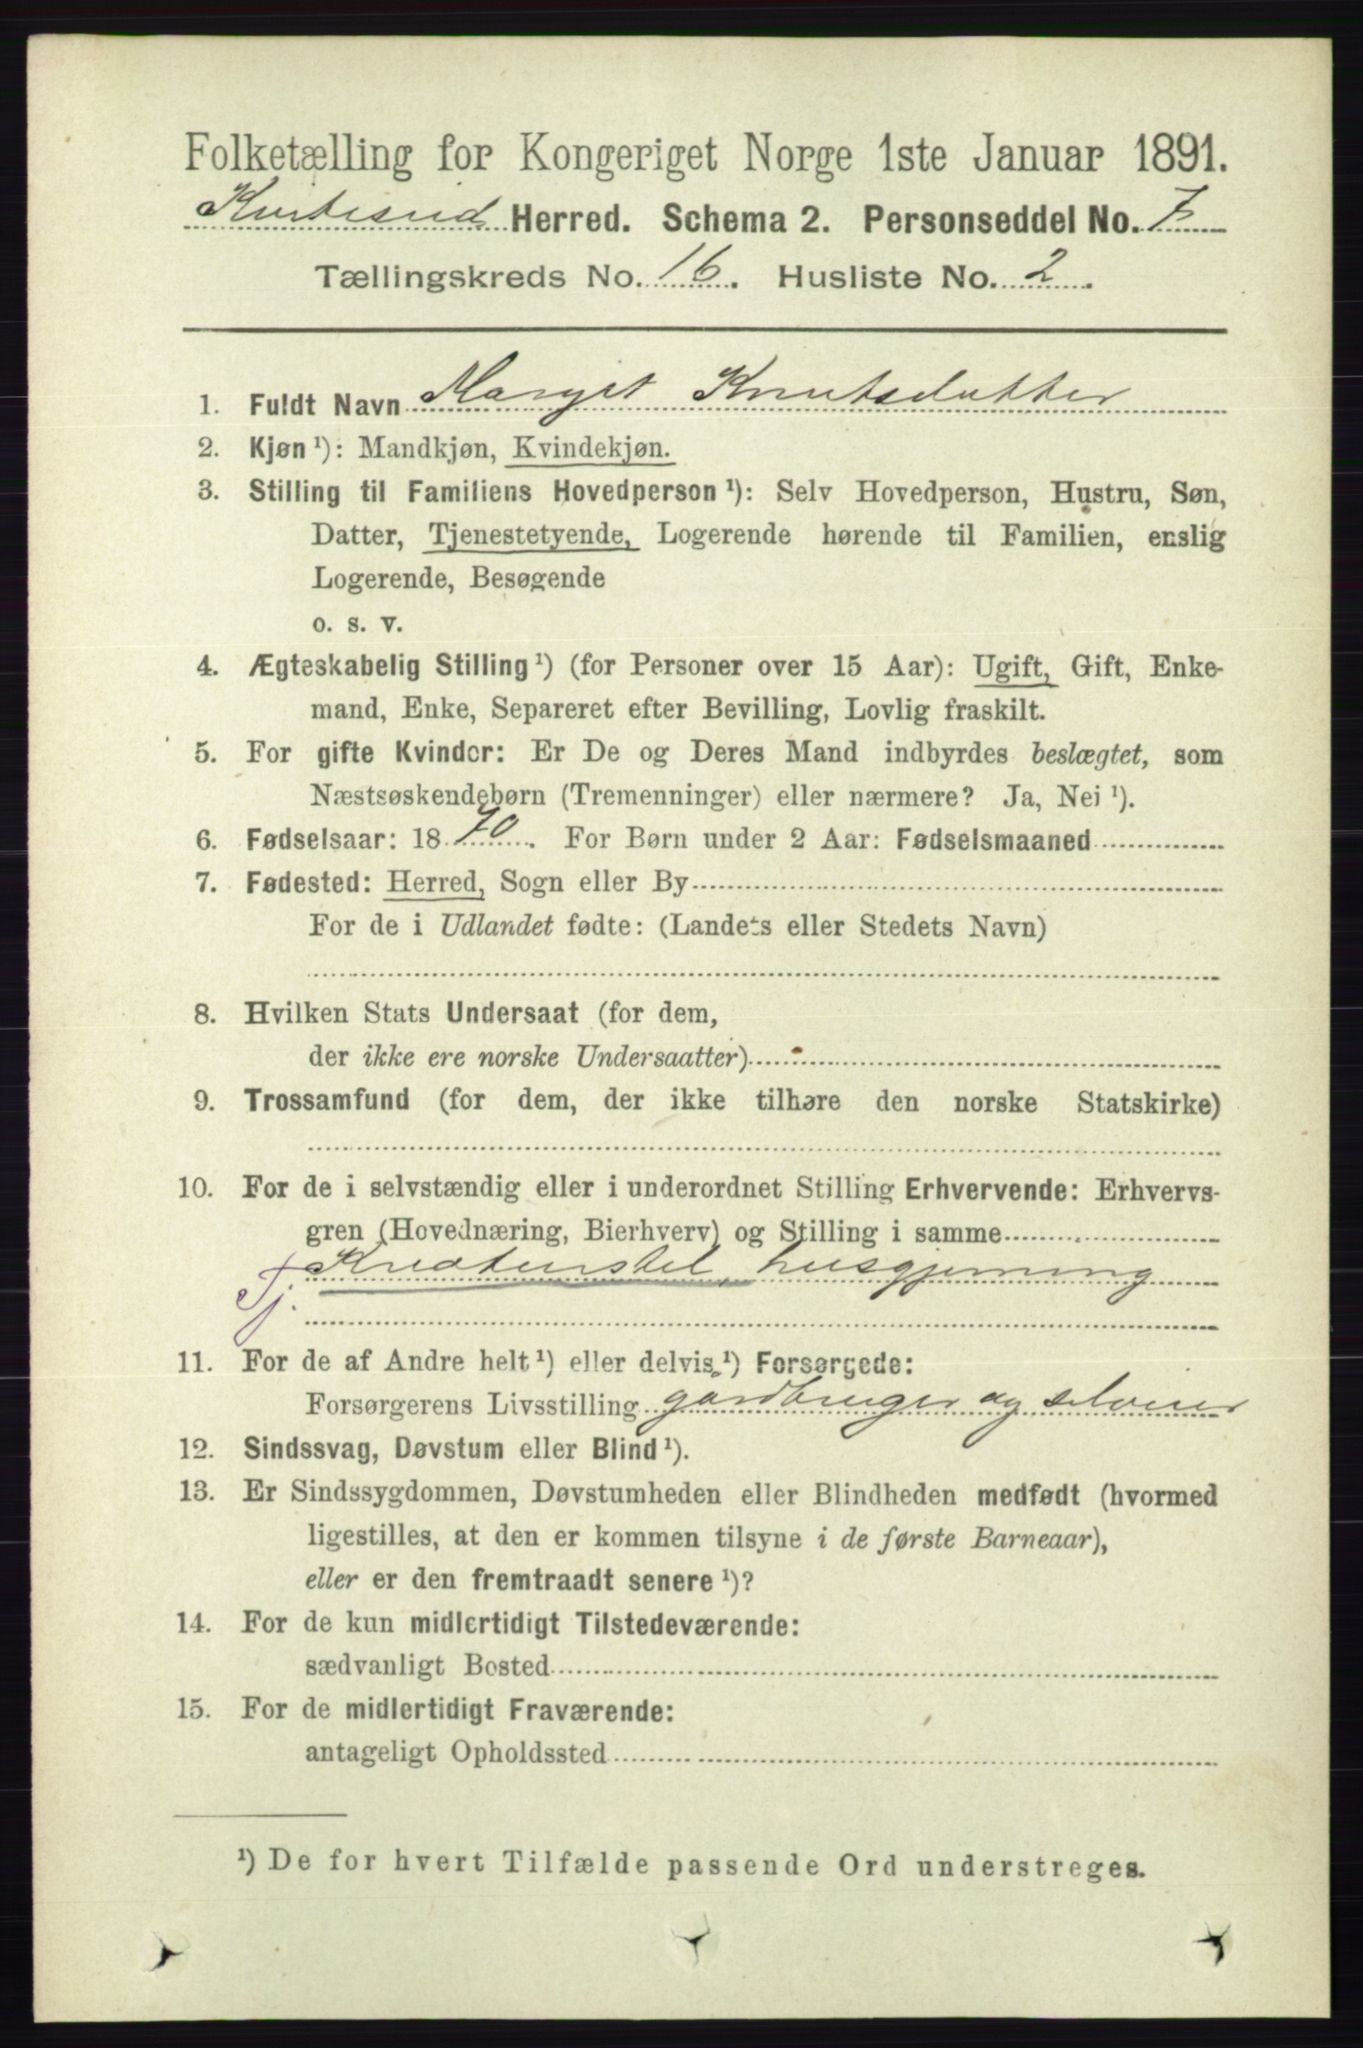 Folketælling for Kongeriget Norge 1ste Januar 1891.
Kviteseid Herred. Schema 2. Personseddel No. 7
Tællingskreds No. 16. Husliste No. 2.
1. Fuldt Navn Margit Knutsdatter
2. Kjøn ¹): Mandkjøn, Kvindekjøn.
3. Stilling til Familiens Hovedperson ¹): Selv Hovedperson, Hustru, Søn,
Datter, Tjenestetyende, Logerende hørende til Familien, enslig
Logerende, Besøgende
o. s. v.
4. Ægteskabelig Stilling ¹) (for Personer over 15 Aar): Ugift, Gift, Enke-
mand, Enke, Separeret efter Bevilling, Lovlig fraskilt.
5. For gifte Kvinder: Er De og Deres Mand indbyrdes beslægtet, som
Næstsøskendebørn (Tremenninger) eller nærmere? Ja, Nei ¹).
6. Fødselsaar: 1870. For Børn under 2 Aar: Fødselsmaaned
7. Fødested: Herred, Sogn eller By
For de i Udlandet fødte: (Landets eller Stedets Navn)
8. Hvilken Stats Undersaat (for dem,
der ikke ere norske Undersaatter)
9. Trossamfund (for dem, der ikke tilhøre den norske Statskirke)
10. For de i selvstændig eller i underordnet Stilling Erhvervende: Erhvervs-
gren (Hovednæring, Bierhverv) og Stilling i samme
Kreaturstel, husgjerning
Tj.
11. For de af Andre helt ¹) eller delvis ¹) Forsørgede:
Forsørgerens Livsstilling gardbruger og
12. Sindssvag, Døvstum eller Blind ¹).
13. Er Sindssygdommen, Døvstumheden eller Blindheden medfødt (hvormed
ligestilles, at den er kommen tilsyne i de første Barneaar),
eller er den fremtraadt senere ¹)?
14. For de kun midlertidigt Tilstedeværende:
sædvanligt Bosted
15. For de midlertidigt Fraværende:
antageligt Opholdssted
¹) De for hvert Tilfælde passende Ord understreges.